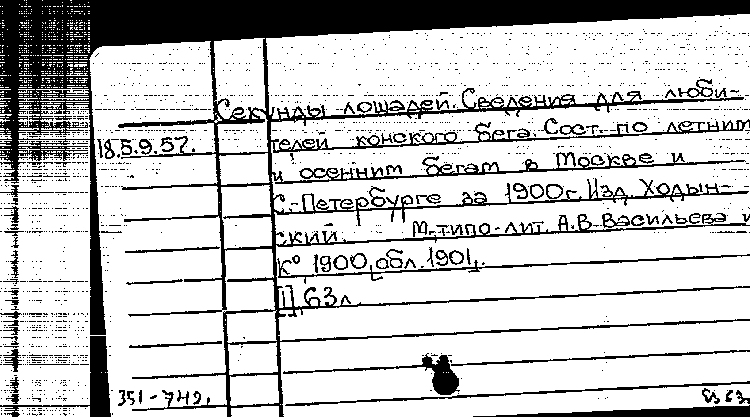 Секунды лошадей. Сведения для люби-
18.5.9.57. телей конского бега. Сост. по летним
и осенним бегам в Москве и
С.-Петербурге за 1900г. Изд. Ходын-
ский. М., типо-лит. А.В. Васильева и
К° 1900, [обл. 1901].
[I], 63 л.
351-749.